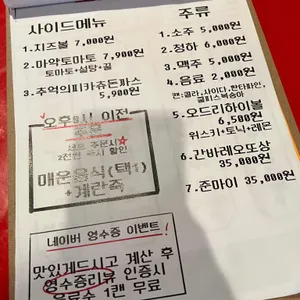 사이드메뉴
1.치즈볼 7,000원
2.마약토마토 7,900원
토마토+설탕+꿀
3.추억의피카츄돈까스
5,900원
오후8시 이전
선착 주문시
2천원 즉시 할인
매운음식(택1)
+계란죽
네이버 영수증 이벤트!
맛있게드시고 계산 후
영수증리뷰 인증시
음료수 1캔 무료
주류
1.소주 5,000원
2.청하 6,000원
3.맥주 5,000원
4.음료 2,000원
캔:콜라,사이다,환타파인,
쿨피스복숭아
5.오드리하이볼
6,500원
위스키+토닉+레몬
6.간바레오또상
35,000원
7.준마이 35,000원